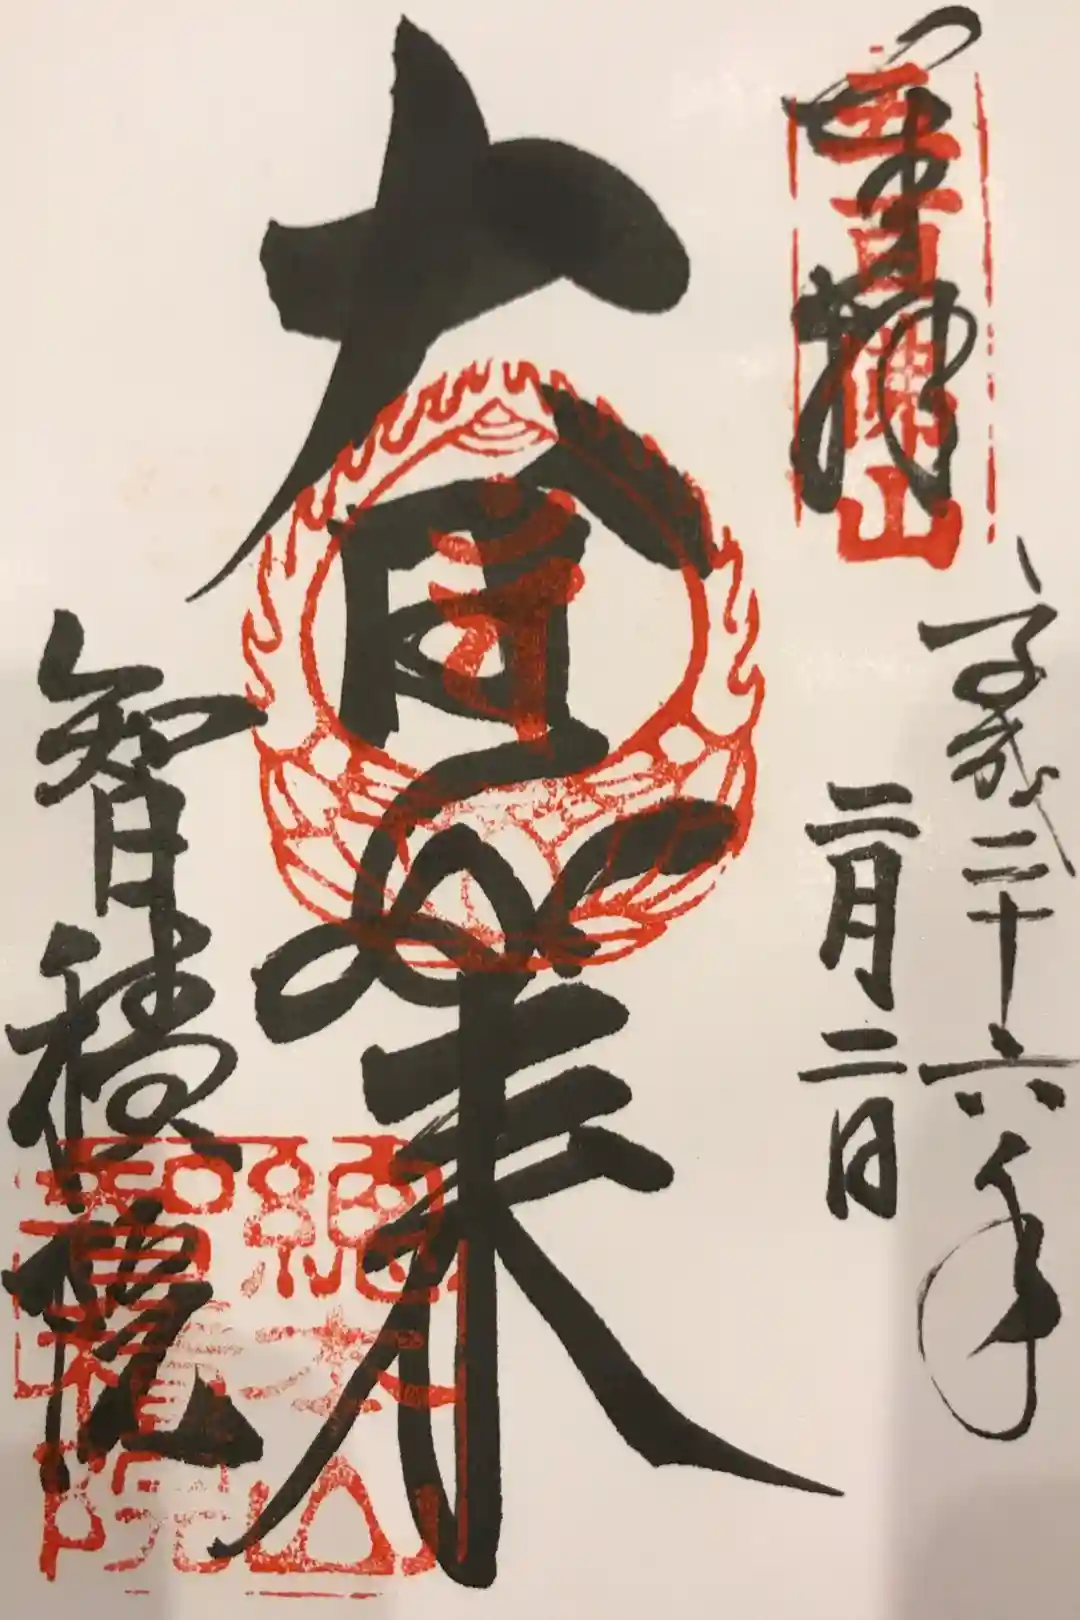 奉拝
五百佛山
平成二十六年
二月二日
大日如来
智積院
總本山
智積院